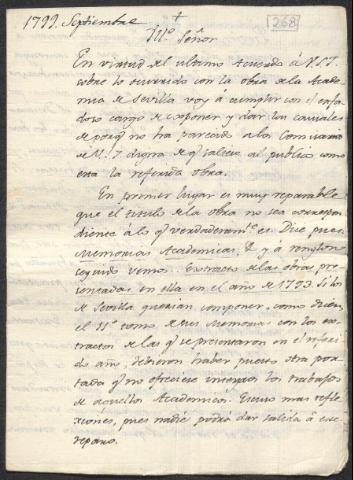 1799. Septiembre
268
Ill.º Señor
En virtud del ultimo acuerdo de V.S.I.
sobre lo ocurrido con la obra de la Acade
mia de Sevilla voy á cumplir con el enfa
doso cargo de exponer y dar las causales
de porq.e no ha parecido a los Comisarios
de V.S.I. digna de q.e saliese al publico como
está la referida obra.
En primer lugar es muy reparable
que el titulo de la obra no sea correspon
diente á lo q.e verdaderam.te es. Dice pues
Memorias Academicas, & y á renglon
seguido vemos. Extractos de las obras pre
sentadas en ella en el año de 1793. Si los
de Sevilla querian componer, como dicen,
el IIº tomo de sus Memorias con los ex
tractos de las q.e se presentaron en el referi
do año, debieron haber puesto otra por
tada q.e no ofreciese integros los trabajos
de aquellos Academicos. Escuso mas refle
xiones, pues nadie podrá dar salida á este
reparo.